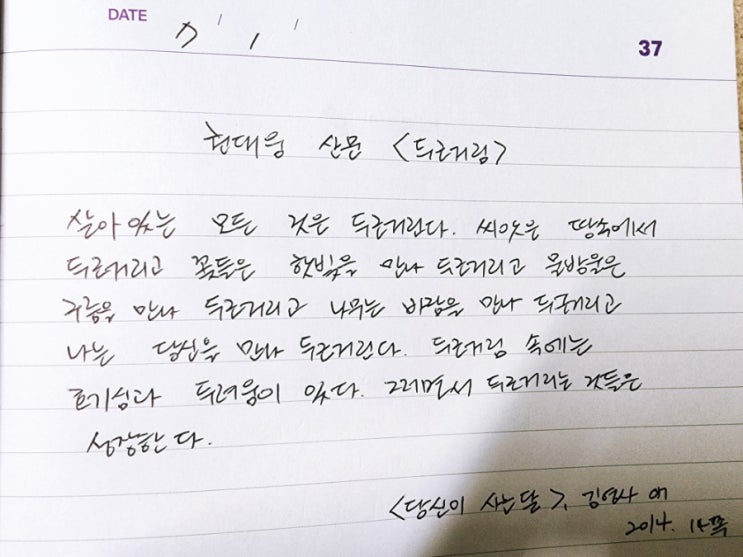 DATE 7 / 1 /
37
권대웅 산문 <두근거림>
살아있는 모든 것은 두근거린다. 씨앗은 땅속에서
두근거리고 꽃들은 햇빛을 만나 두근거리고 물방울은
구름을 만나 두근거리고 나무는 바람을 만나 두근거리고
나는 당신을 만나 두근거린다. 두근거림 속에는
호기심과 두려움이 있다. 그러면서 두근거리는 것들은
성장한다.
<당신이 사는 달>, 김영사 on
2014. 14쪽